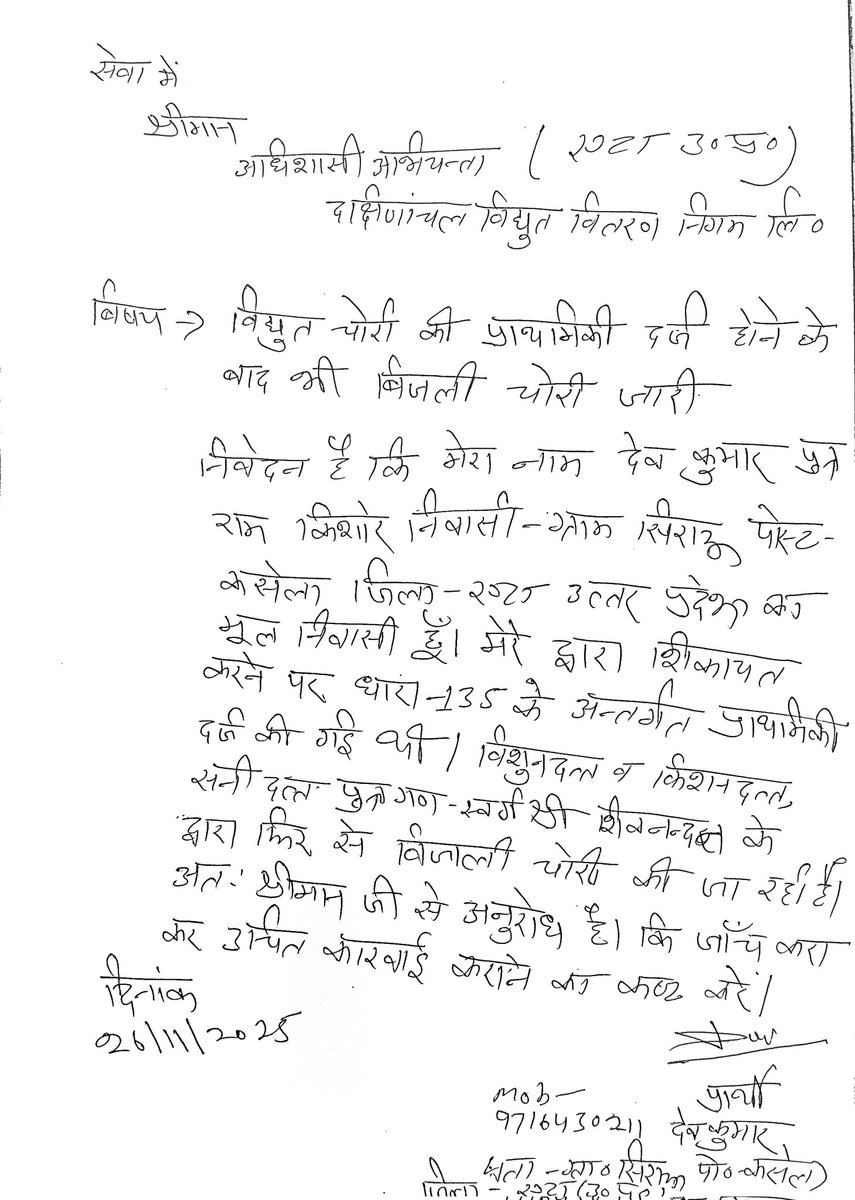 सेवा में
श्रीमान
अधिशासी अभियन्ता ( एटा उ०प्र०)
दक्षिणांचल विद्युत वितरण निगम लि०
विषय → विद्युत चोरी की प्राथमिकी दर्ज होने के
बाद भी बिजली चोरी जारी
निवेदन है कि मेरा नाम देव कुमार पुत्र
राम किशोर निवासी - ग्राम सिराऊ पोस्ट-
कसेला जिला - एटा उत्तर प्रदेश का
मूल निवासी हूँ। मेरे द्वारा शिकायत
करने पर, धारा -135 के अन्तर्गत प्राथमिकी
दर्ज की गई थी। विशुनदत्त व किशनदत्त,
सनी दत्त पुत्रगण - स्वर्ग श्री शिवनन्दन के
द्वारा फिर से बिजली चोरी की जा रही है।
अतः श्रीमान जी से अनुरोध है। कि जाँच करा
कर उचित कारवाई कराने का कष्ट करें।
दिनांक
26/11/2025
प्रार्थी
Mob -
9716430211 देव कुमार
पता - ग्रा० सिराऊ पो०-कसेला)
जिला - एटा (उ०प्र०)